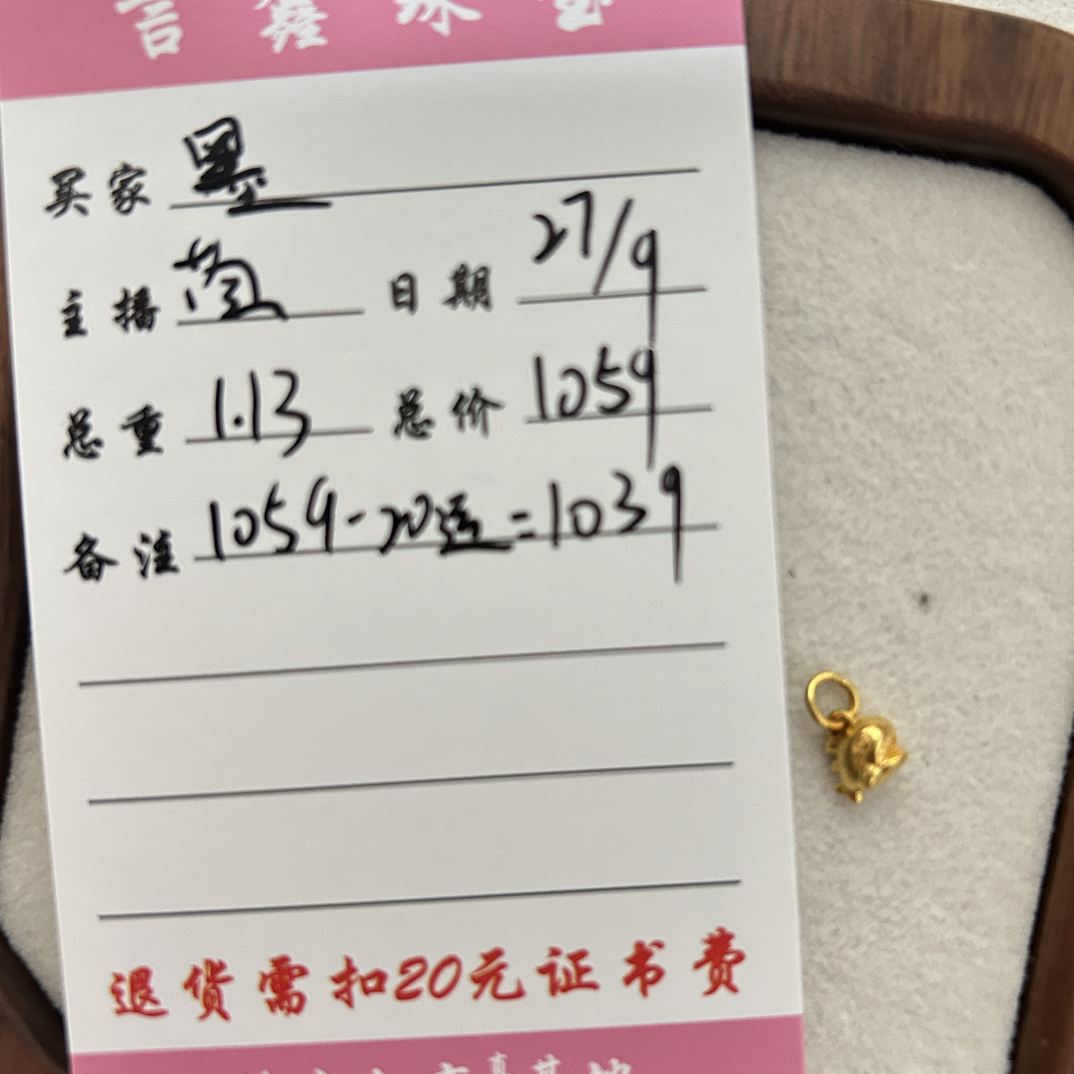 鑫珠宝
买家 墨
主播 萱 日期 27/9
总重 1.13 总价 1059
备注 1059-20送=1039
退货需扣20元证书费